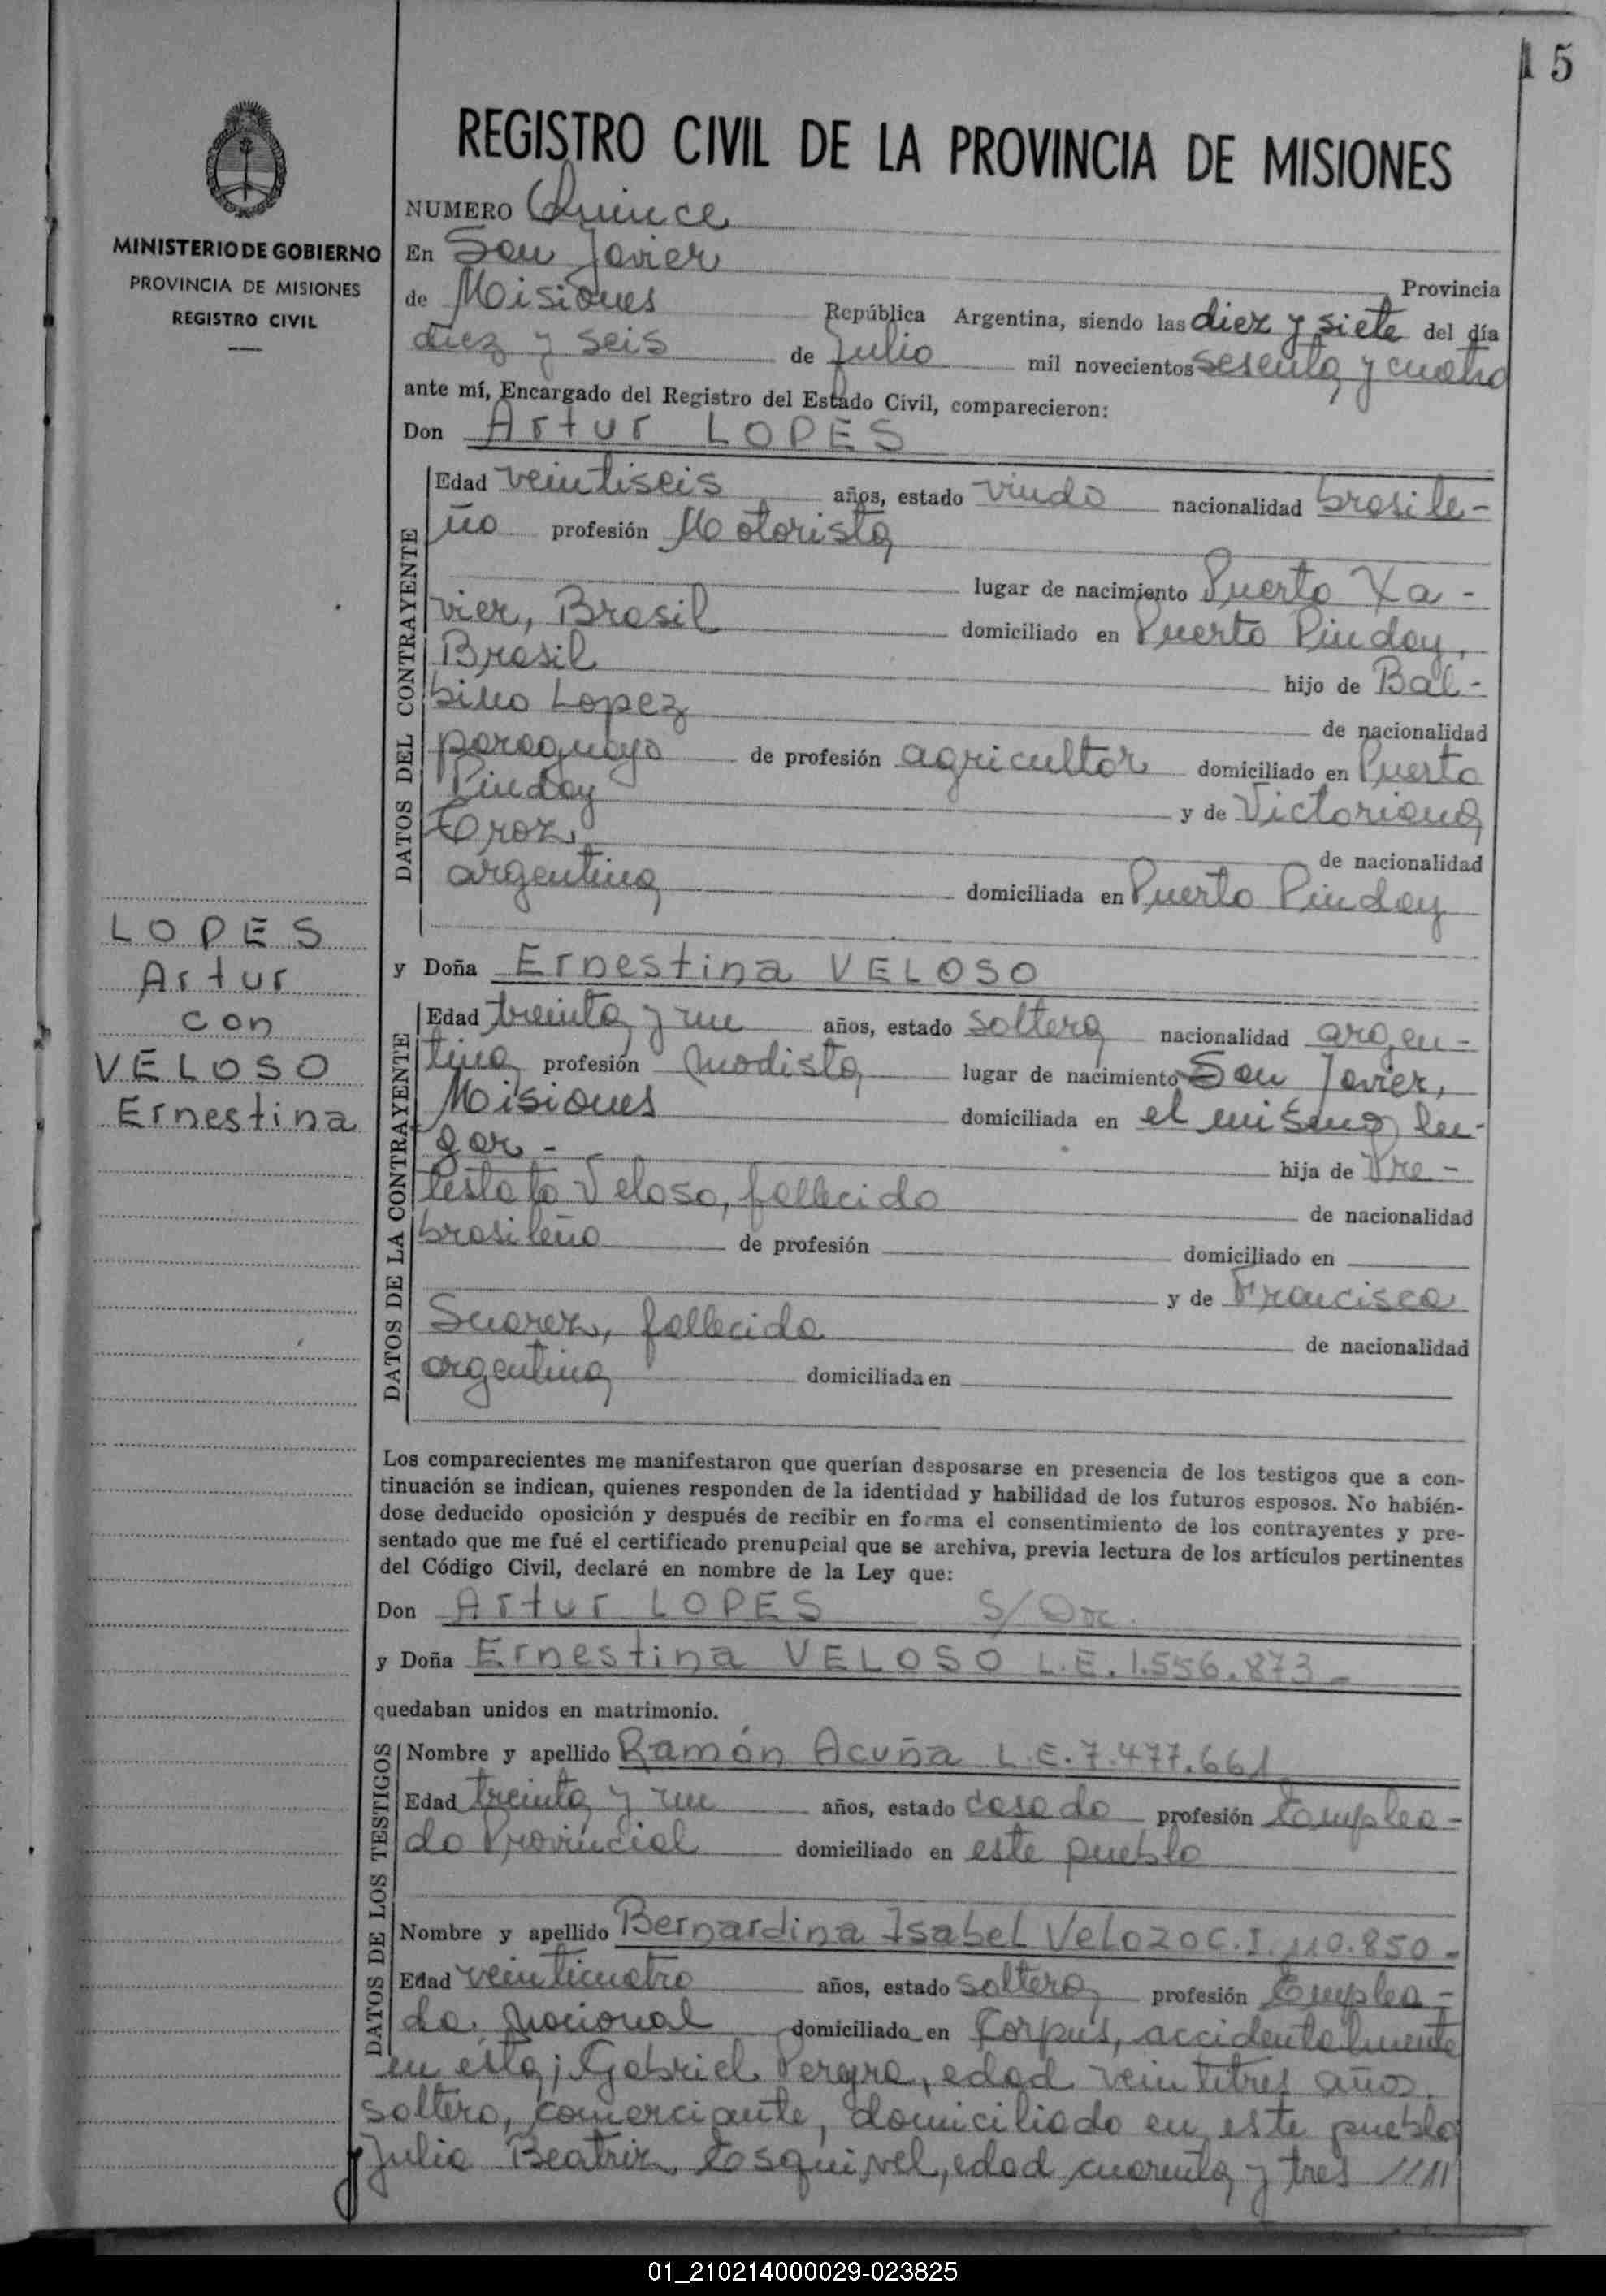 15
REGISTRO CIVIL DE LA PROVINCIA DE MISIONES
MINISTERIO DE GOBIERNO
PROVINCIA DE MISIONES
REGISTRO CIVIL
LOPES
Artur
con
VELOSO
Ernestina
NUMERO Quince
En San Javier Provincia
de Misiones República Argentina, siendo las diez y siete del día
diez y seis de Julio mil novecientos sesenta y cuatro
ante mí, Encargado del Registro del Estado Civil, comparecieron:
Don Artur LOPES
DATOS DEL CONTRAYENTE
Edad veintiseis años, estado viudo nacionalidad brasile-
ño profesión Motorista
lugar de nacimiento Puerto Xa-
vier, Brasil domiciliado en Puerto Pinday,
Brasil hijo de Bal-
bino Lopez de nacionalidad
paraguayo de profesión agricultor domiciliado en Puerto
Pinday y de Victoriana
Eroz, de nacionalidad
argentina domiciliada en Puerto Pinday
y Doña Ernestina VELOSO
DATOS DE LA CONTRAYENTE
Edad treinta y un años, estado soltera nacionalidad argen-
tina profesión modista lugar de nacimiento San Javier,
Misiones domiciliada en el mismo lu-
gar.- hija de Pre-
testato Veloso, fallecido de nacionalidad
brasileño de profesión domiciliado en
y de Francisca
Suarez, fallecida de nacionalidad
argentina domiciliada en
Los comparecientes me manifestaron que querían desposarse en presencia de los testigos que a con-
tinuación se indican, quienes responden de la identidad y habilidad de los futuros esposos. No habién-
dose deducido oposición y después de recibir en forma el consentimiento de los contrayentes y pre-
sentado que me fué el certificado prenupcial que se archiva, previa lectura de los artículos pertinentes
del Código Civil, declaré en nombre de la Ley que:
Don Artur LOPES S/Doc.
y Doña Ernestina VELOSO L.E. 1.556.873-
quedaban unidos en matrimonio.
DATOS DE LOS TESTIGOS
Nombre y apellido Ramón Acuña L.E. 7.477.661
Edad treinta y un años, estado casado profesión Emplea-
do Provincial domiciliado en este pueblo
Nombre y apellido Bernardina Isabel Velozo C.I. 110.850-
Edad veinticuatro años, estado soltera profesión Emplea-
da Nacional domiciliada en Corpus, accidentalmente
en esta; Gabriel Pereyra, edad veintitres años,
soltero, comerciante, domiciliado en este pueblo
Julia Beatriz Esquivel, edad cuarenta y tres /////
01_210214000029-023825